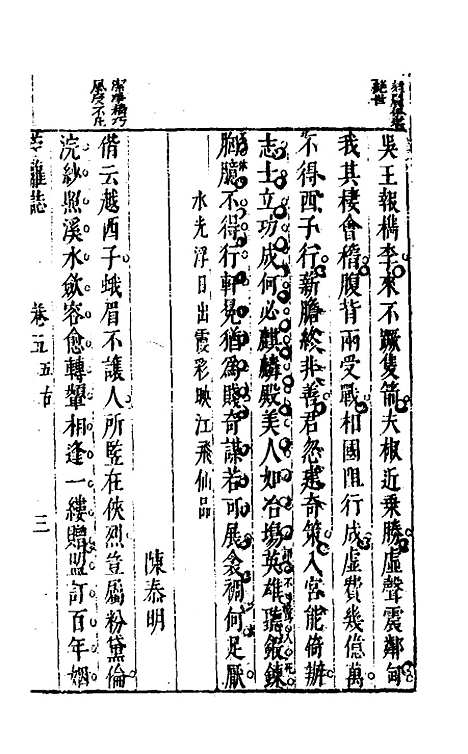 吳王報檇李來不蹶隻箭夫椒近乘勝虛聲震鄰甸
我其棲會稽腹背兩受戰相國阻行成虛費幾億萬
不得西子行新膽終非善君忽建奇策入宮能倚辦
志士立功成何必麒麟殿美人如冶場英雄聽鍛鍊
胸臆不得行軒冕猶為賤奇謀若可展衾裯何足厭
水光浮日出霞彩映江飛仙品
陳泰明
偕云越西子蛾眉不讓人所監在俠烈豈屬粉黛倫
浣紗照溪水斂容愈轉顰相逢一縷贈盟訂百年姻
苧蘿誌 卷五五古 三